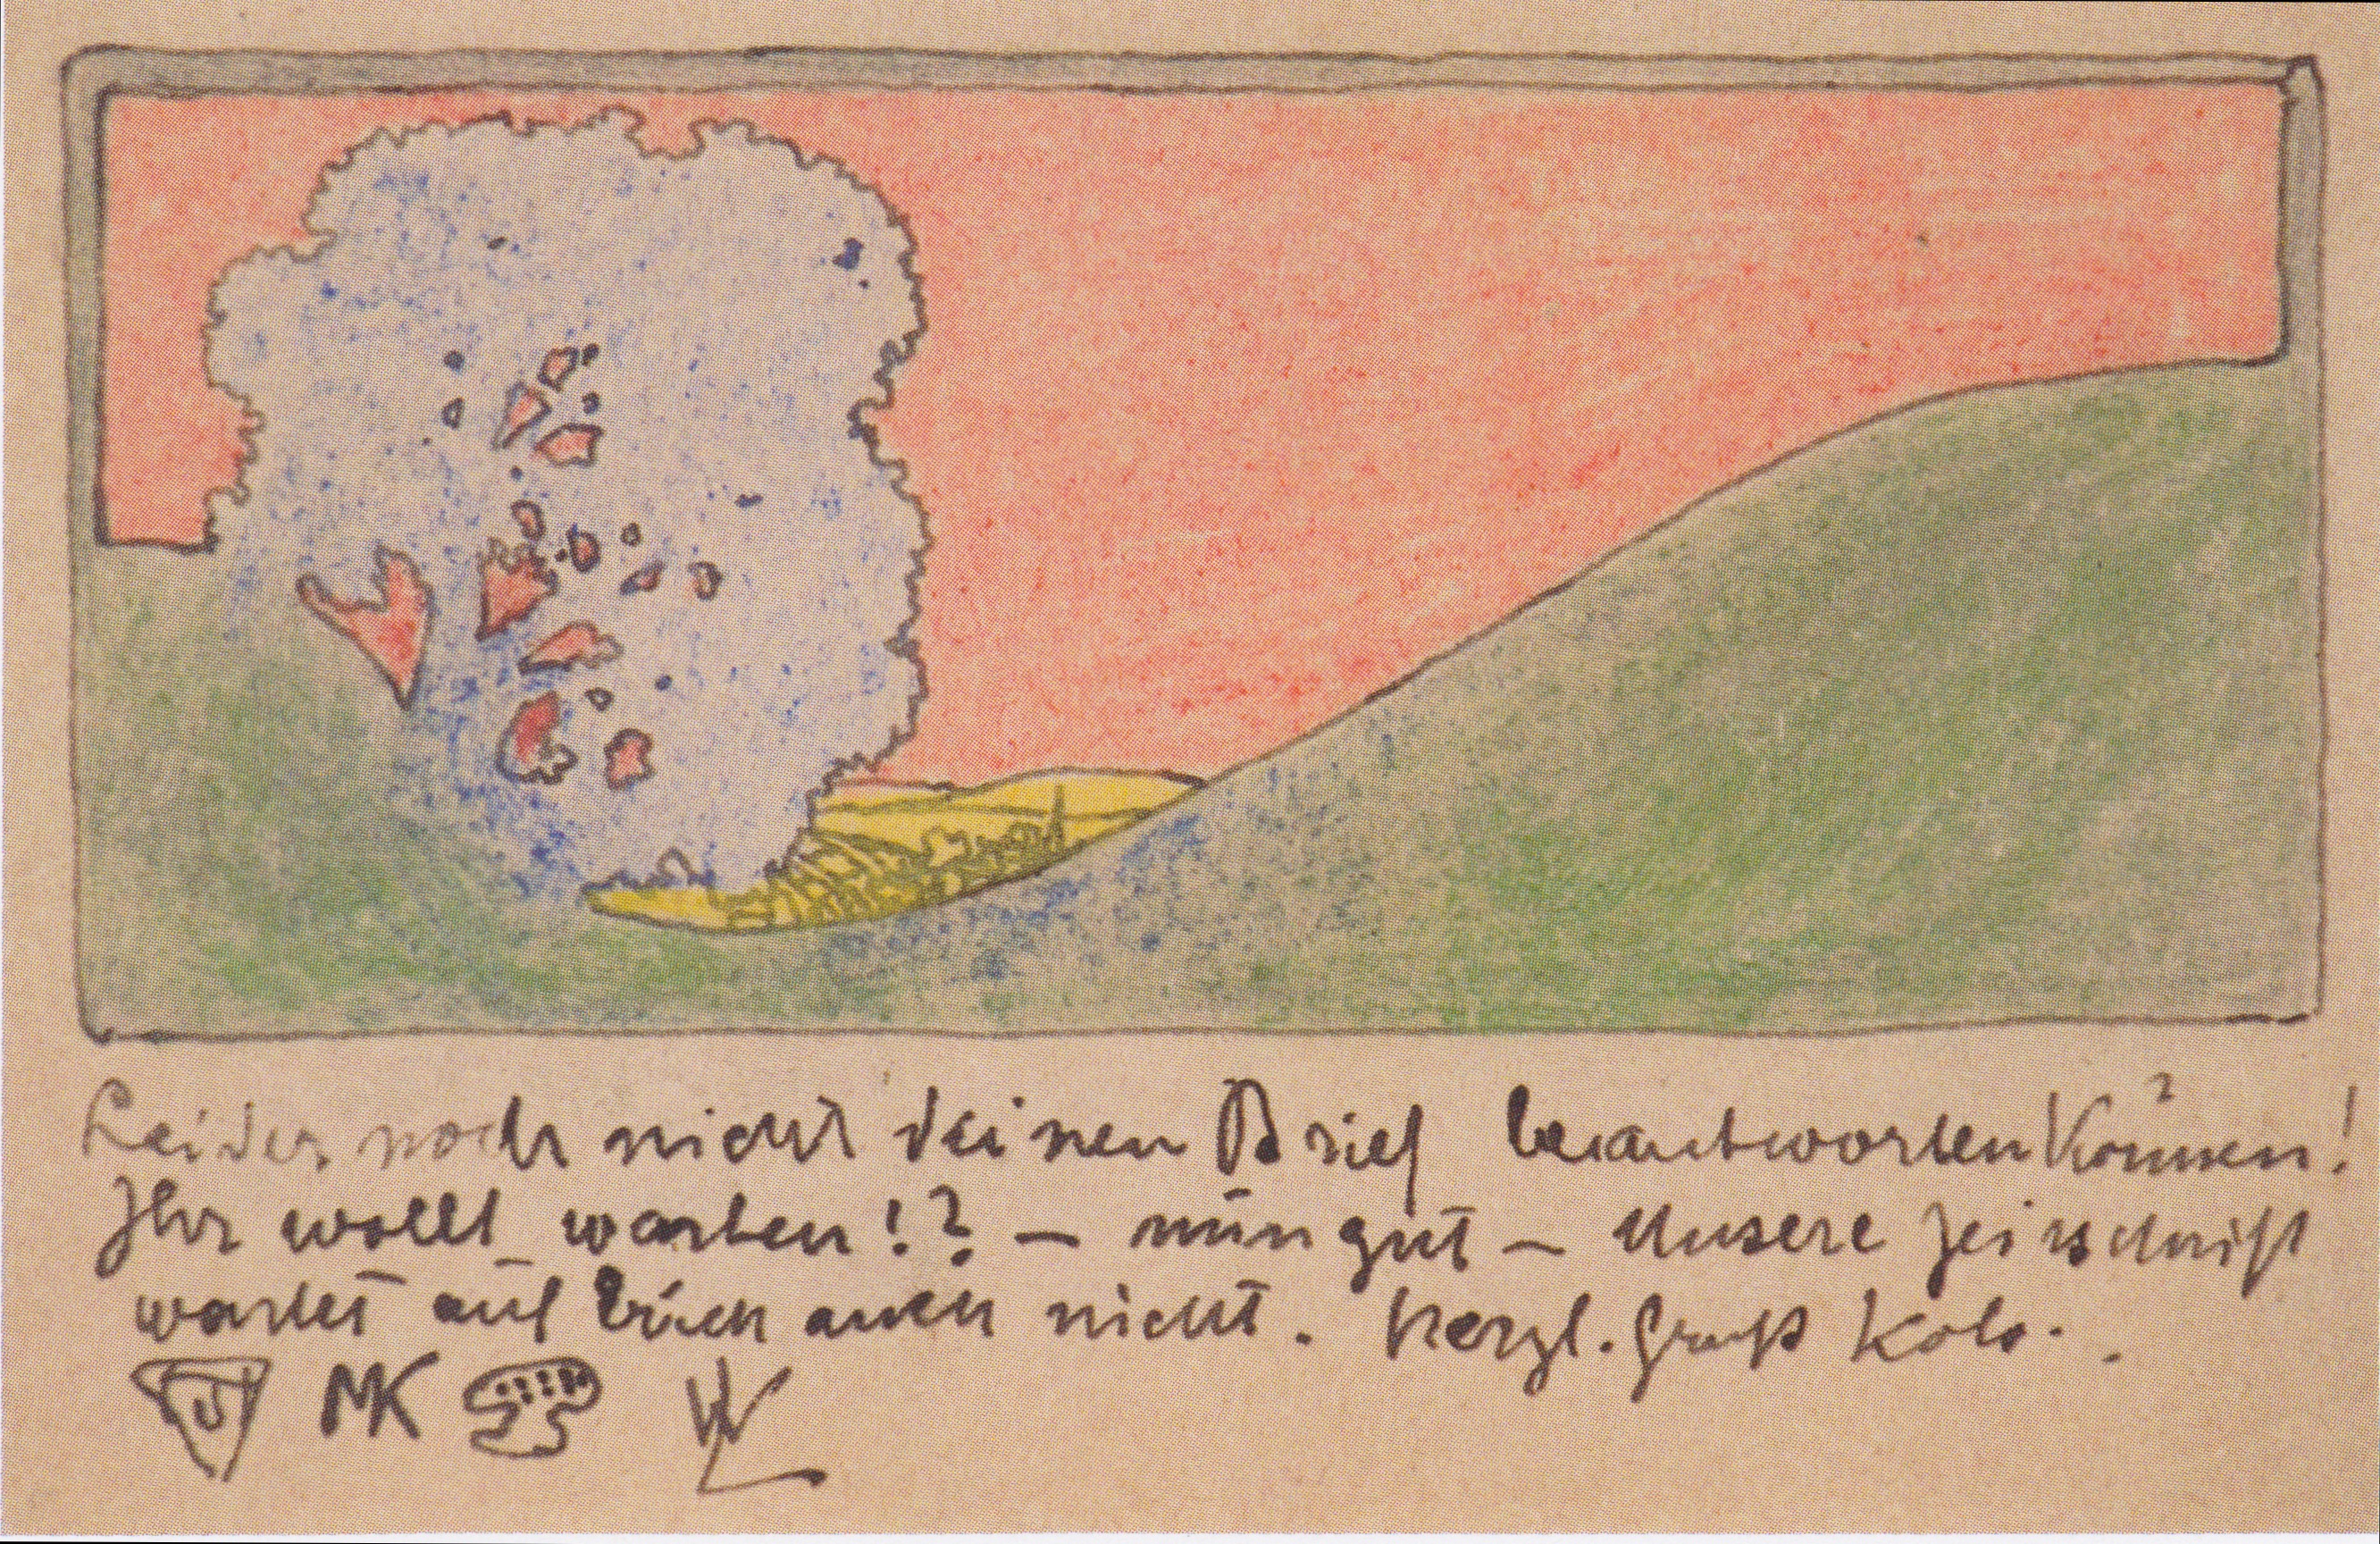 Leider noch nicht deinen Brief beantworten können!
Ihr wollt warten!? – nun gut – Unsere Zeitschrift
wartet auf Euch auch nicht. Herzl. Gruß Kolo.
MK